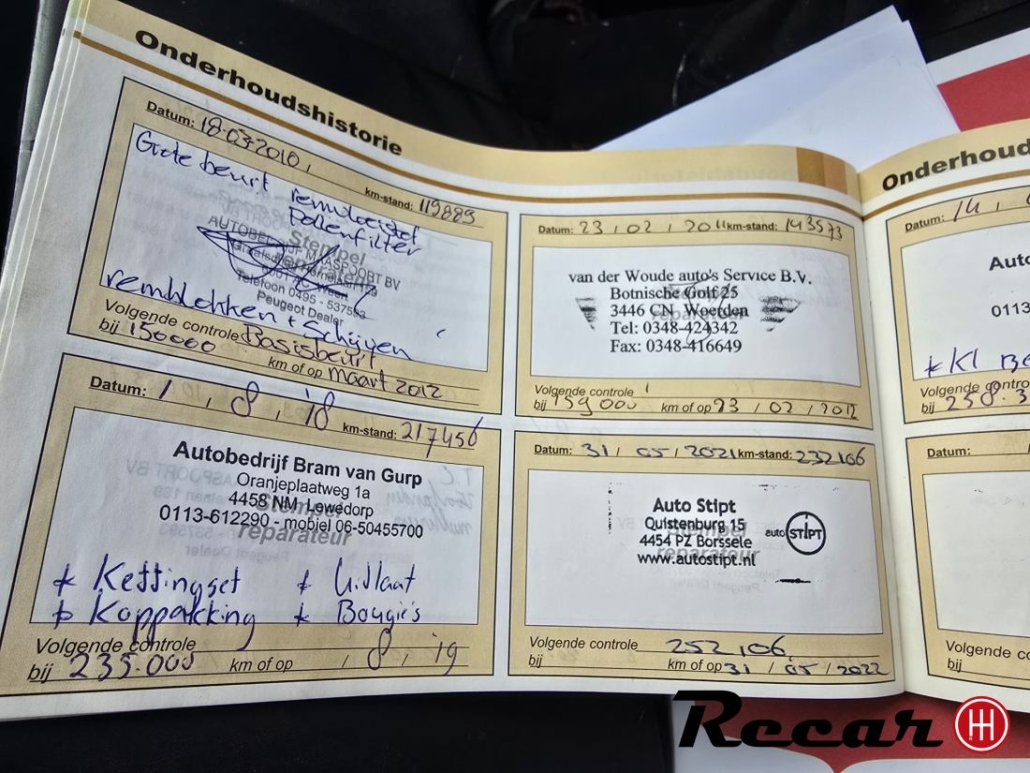 Onderhoudshistorie
Datum: 18-03-2010,
km-stand: 119889
Grote beurt remvloeistof
Pollenfilter
Stempel
reparateur
AUTOBEDRIJF MAASPOORT BV
Telefoon 0495 - 537593
Peugeot Dealer
remblokken + Schijven
Volgende controle Basisbeurt
bij 150000 km of op maart 2012
Datum: 23 / 02 / 2011 km-stand: 143573
van der Woude auto's Service B.V.
Botnische Golf 25
3446 CN Woerden
Tel: 0348-424342
Fax: 0348-416649
Volgende controle
bij 159000 km of op 23 / 02 / 2012
Datum: 1 / 8 / '18 km-stand: 217456
Autobedrijf Bram van Gurp
Oranjeplaatweg 1a
4458 NM Lewedorp
Stempel
0113-612290 - mobiel 06-50455700
reparateur
* Kettingset * Uitlaat
* Koppakking * Bougie's
Volgende controle
bij 235.000 km of op / 8 / 19
Datum: 31 / 05 / 2021 km-stand: 232106
Auto Stipt
Quistenburg 15
4454 PZ Borssele
reparateur
www.autostipt.nl
auto STIPT
Volgende controle 252106,
bij km of op 31 / 05 / 2022
Onderhoud
Datum: 14,
Auto
0113
* Kl
Volgende controle
bij 258.3
Datum:
Volgende co
bij
Recar